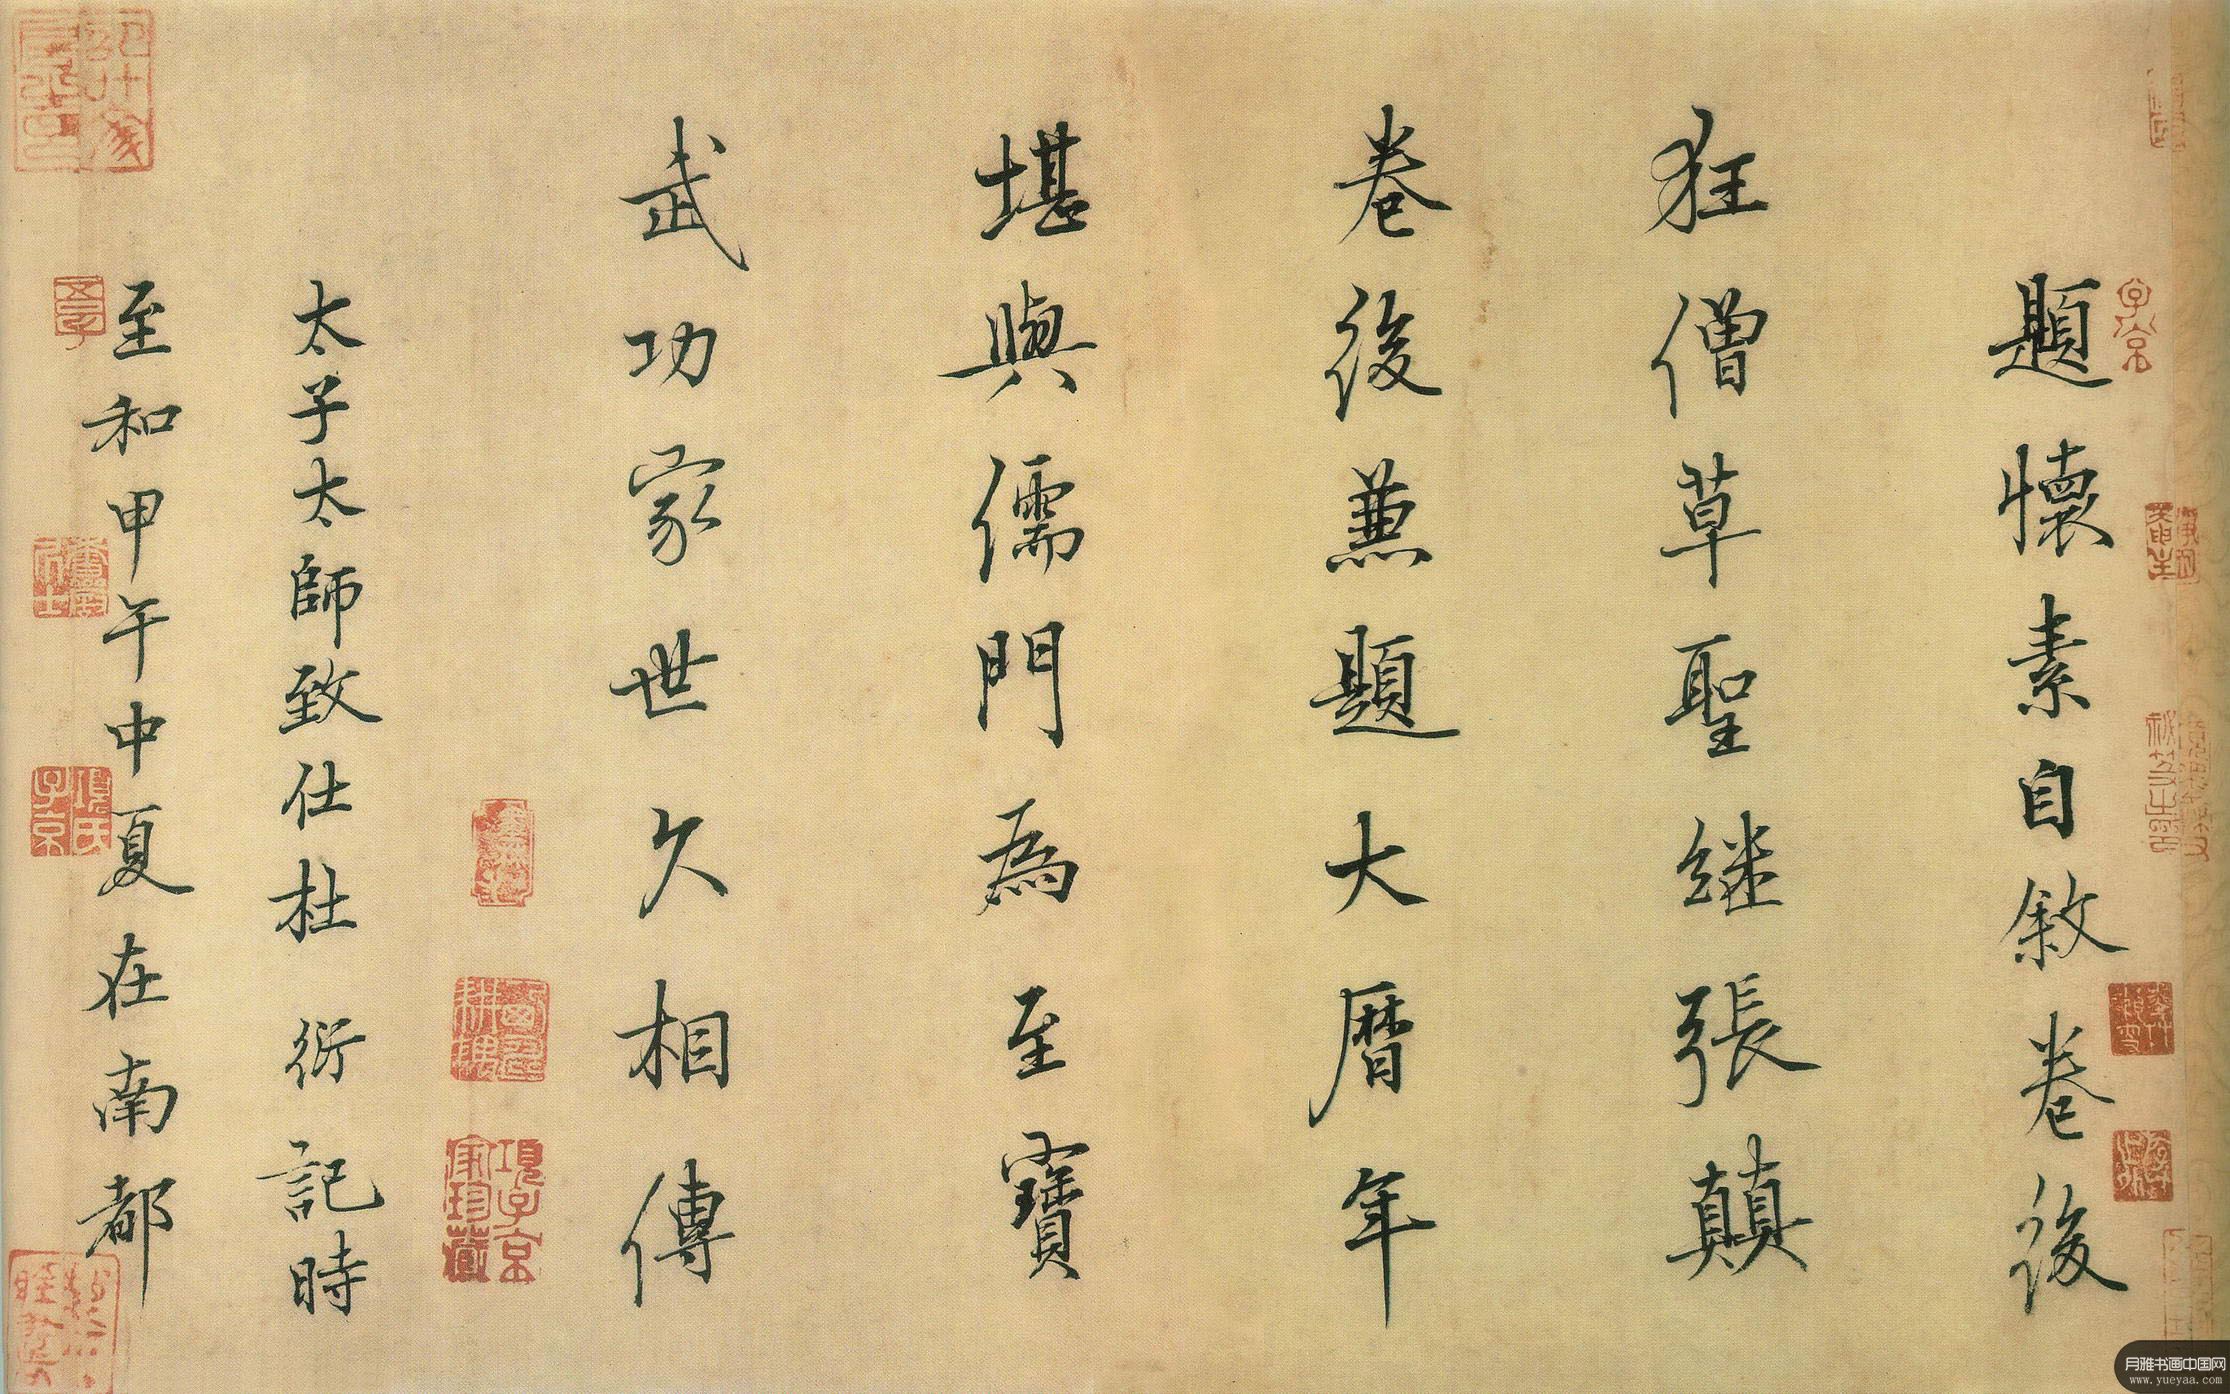 題懷素自敘卷後
狂僧草聖继張顛
卷後兼題大曆年
堪與儒門為至寶
武功家世久相傳
太子太師致仕杜衍記時
至和甲午中夏在南都
子京
項子京家珍藏
項氏子京
月雅书画中国网
www.yueyaa.com